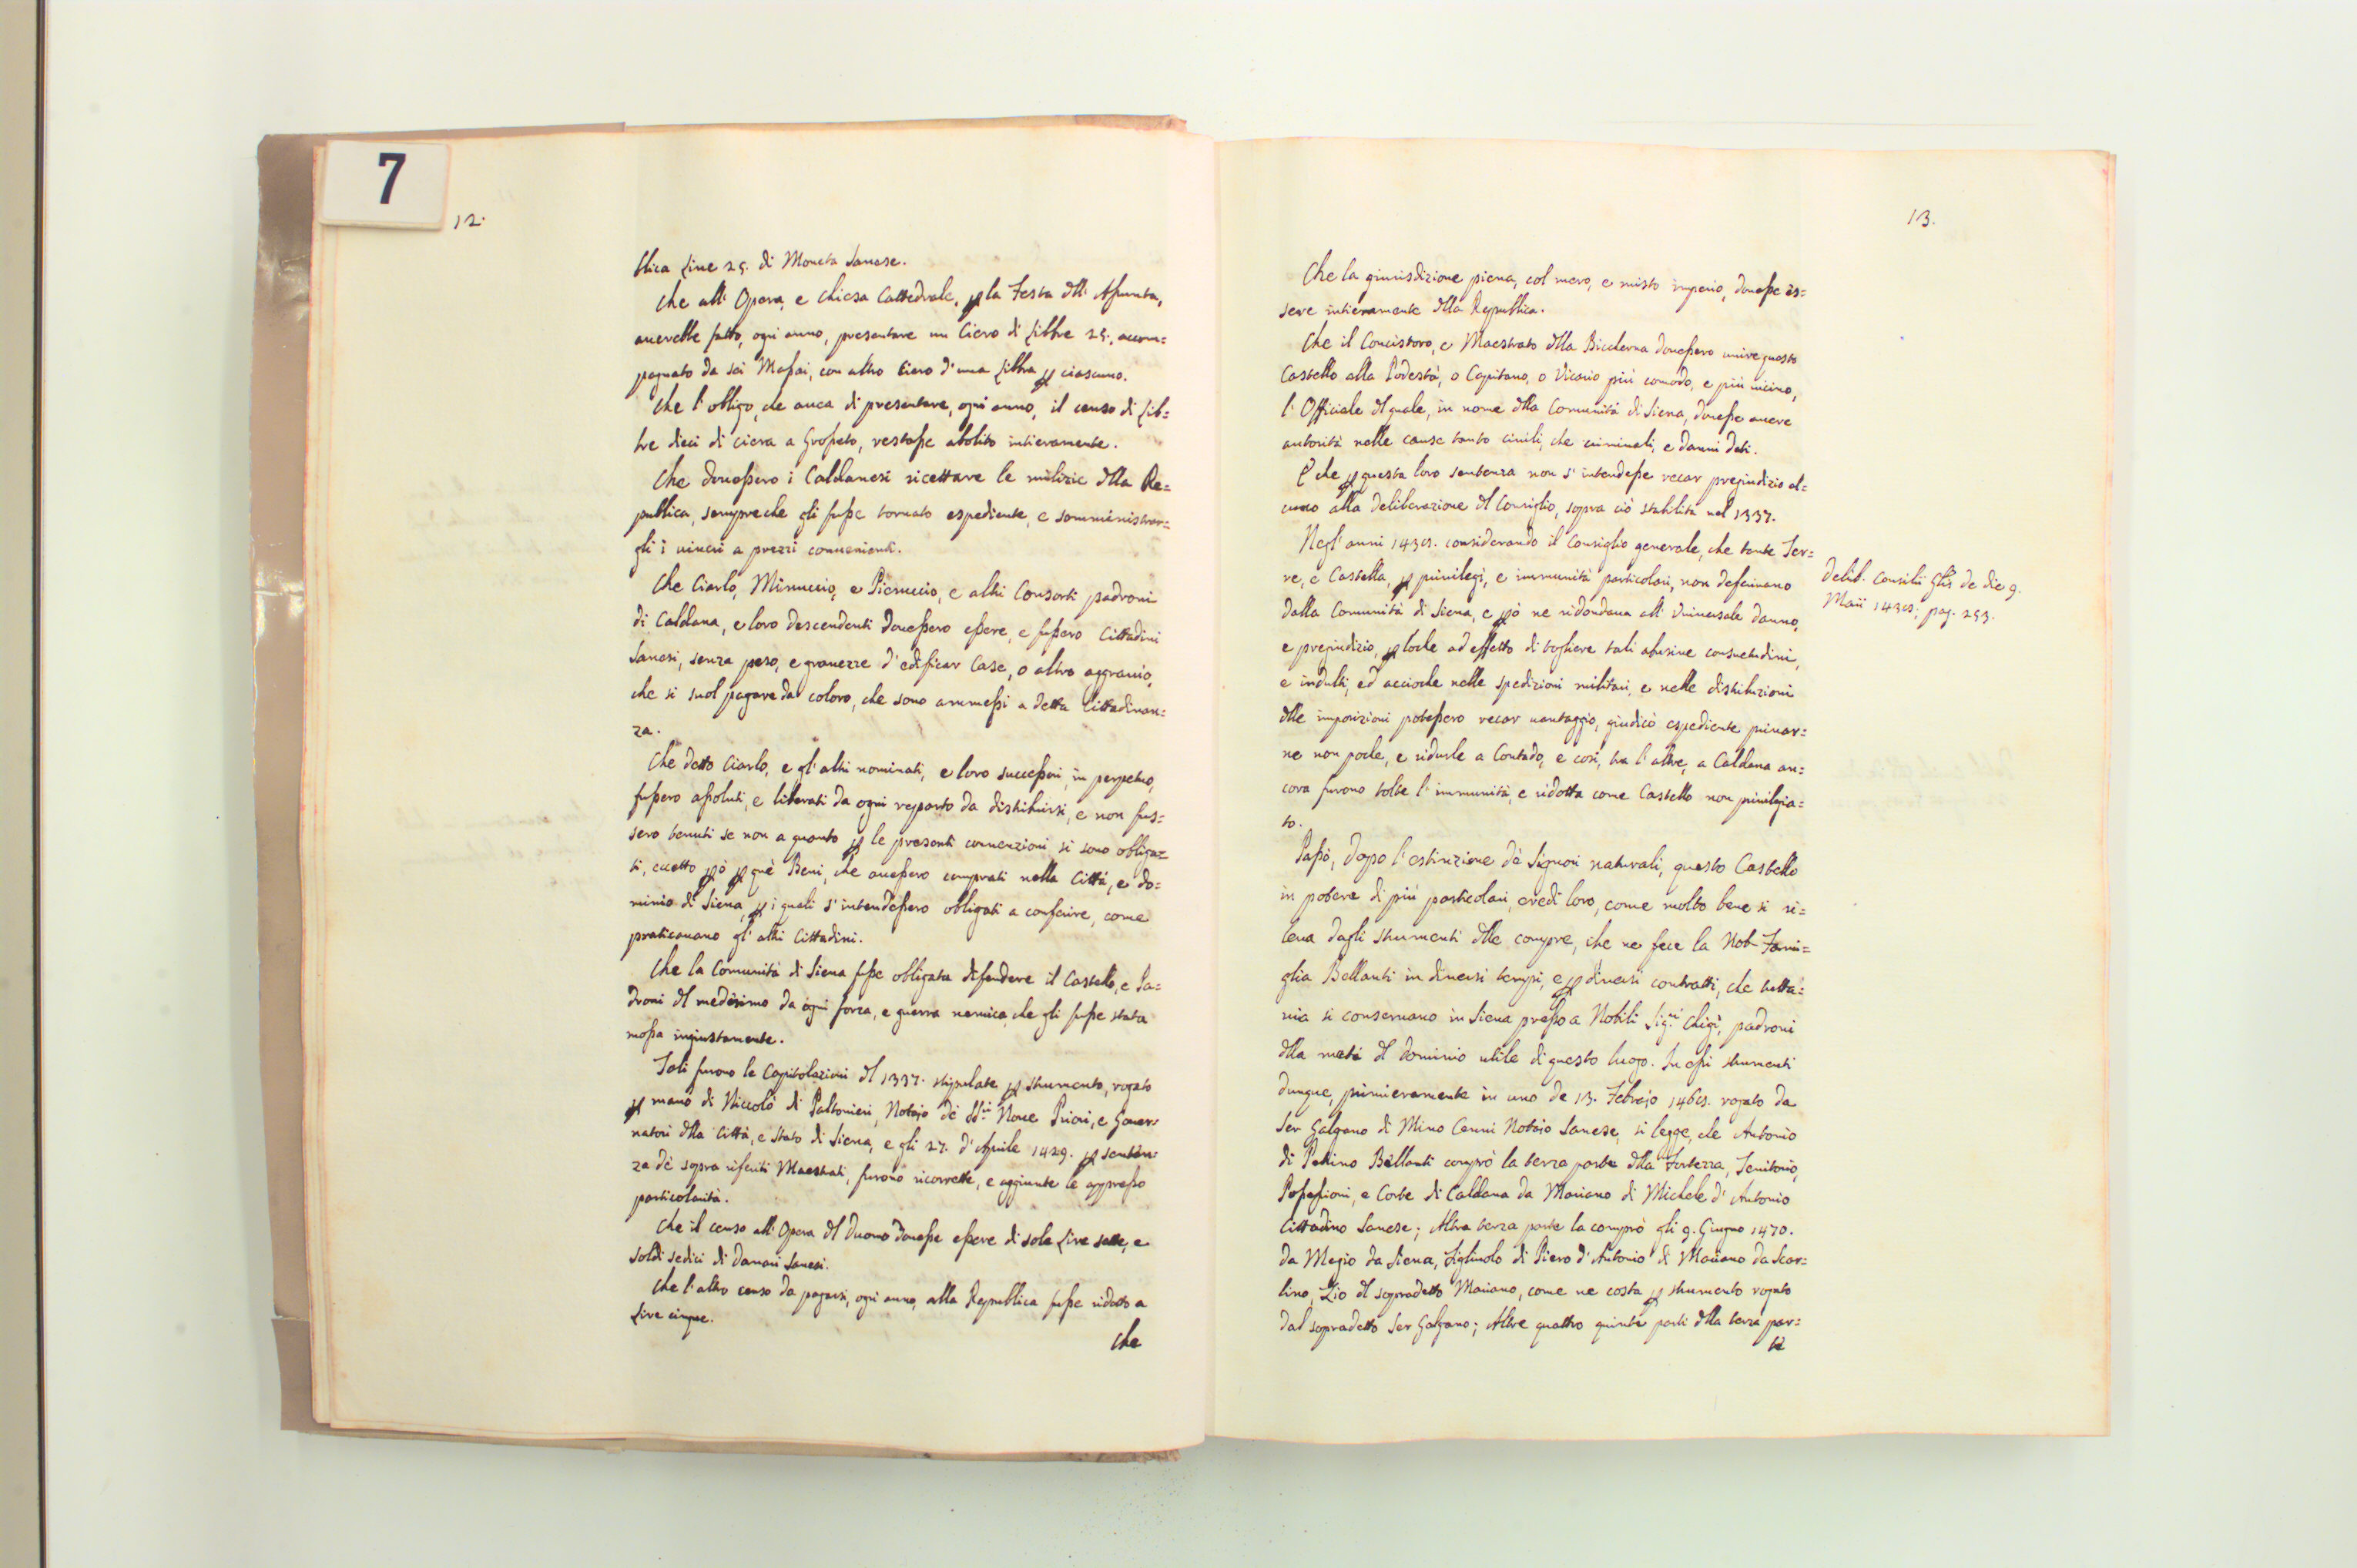 7
12.
blica Lire 25. di Moneta Sanese.
Che all' Opera, e Chiesa Cattedrale, p la Festa dll' Assunta,
auerebbe fatto, ogni anno, presentare un Ciero di Libbre 25. accom=
pagnato da sei Massai, con altro Ciero d'una Libbra p ciascuno.
Che l'obligo, che auea di presentare, ogni anno, il censo di Lib=
bre dieci di ciera a Grosseto, restasse abolito intieramente.
Che douessero i Caldanesi ricettare le milizie dlla Re=
publica, sempre che gli fusse tornato espediente, e somministrar=
gli i uiueri a prezzi conuenienti.
Che Ciarlo, Minuccio, e Pieruccio, e altri Consorti padroni
di Caldana, e loro descendenti douessero essere, e fussero Cittadini
Sanesi, senza peso, e grauezze d'edificar Case, o altro aggrauio,
che si suol pagare da coloro, che sono ammessi a detta Cittadinan=
za.
Che detto Ciarlo, e gl'altri nominati, e loro successori, in perpetuo,
fussero assoluti, e liberati da ogni reparto da distribuirsi, e non fus=
sero tenuti se non a quanto p le presenti conuenzioni si sono obliga=
ti, eccetto pò p què Beni, che auessero comprati nella Città, e do=
minio di Siena, p i quali s'intendessero obligati a conferire, come
praticauano gl'altri Cittadini.
Che la Comunità di Siena fusse obligata difendere il Castello, e Pa=
droni dl medesimo da ogni forza, e guerra nemica, che gli fusse stata
mossa ingiustamente.
Tali furono le Capitolazioni dl 1337. stipulate p strumento, rogato
p mano di Niccolò di Paltonieri, Notajo dè SSri Noue Priori, e Gouer=
natori dlla Città, e Stato di Siena, e gli 27. d'Aprile 1429. p senten=
za dè sopra riferiti Maestrati, furono ricorrette, e aggiunte le appresso
particolarità.
Che il censo all' Opera dl Duomo douesse essere di sole Lire sette, e
soldi sedici di Danari Sanesi.
Che l'altro censo da pagarsi, ogni anno, alla Republica fusse ridotto a
Lire cinque.
Che
13.
Che la giurisdizione piena, col mero, e misto imperio, douesse es=
sere intieramente dlla Republica.
Che il Concistoro, e Maestrato dlla Biccherna douessero unire questo
Castello alla Podestà, o Capitano, o Vicario più comodo, e più uicino,
l'Offiziale dl quale, in nome dlla Comunità di Siena, douesse auere
autorità nelle cause tanto ciuili, che criminali, e danni dati.
E che p questa loro sentenza non s'intendesse recar pregiudizio al=
cuno alla deliberazione dl Consiglio, sopra ciò stabilita nel 1337.
Negl'anni 1438. considerando il Consiglio generale, che tante Ter=
re, e Castella, p priuilegi, e immunità particolari, non deseruiuano
dalla Comunità di Siena, e pò ne ridondaua all' Vniuersale danno,
e pregiudizio, ploche ad effetto di togliere tali abusiue consuetudini,
e indulti, ed accioche nelle spedizioni militari, e nelle distribuzioni
dlle imposizioni potessero recar uantaggio, giudicò espediente priuar=
ne non poche, e ridurle a Contado, e così, tra l'altre, a Caldana an=
cora furono tolte l'immunità, e ridotta come Castello non priuilegia=
to.
Passò, dopo l'estinzione dè Signori naturali, questo Castello
in potere di più particolari, eredi loro, come molto bene si ri=
leua dagli strumenti dlle compre, che ne fece la Nob. Fami=
glia Bellanti in diuersi tempi, e p diuersi contratti, che tutta=
uia si conseruano in Siena presso a Nobili Sigri Chigi, padroni
dlla metà dl dominio utile di questo luogo. In essi strumenti
dunque, primieramente in uno de 13. Febrajo 1468. rogato da
Ser Galgano di Mino Cenni Notajo Sanese, si legge, che Antonio
di Petrino Bellanti comprò la terza parte dlla Fortezza, Territorio,
Possessioni, e Corte di Caldana da Mariano di Michele d'Antonio
Cittadino Sanese; Altra terza parte la comprò gli 9. Giugno 1470.
da Megio da Siena, Figliuolo di Piero d'Antonio di Mariano da Scar=
lino, Zio dl sopradetto Mariano, come ne costa p strumento rogato
dal sopradetto Ser Galgano; Altre quattro quinte parti dlla terza par=
te
Delib. Consilii Glis de die 9.
Maii 1438. pag. 253.